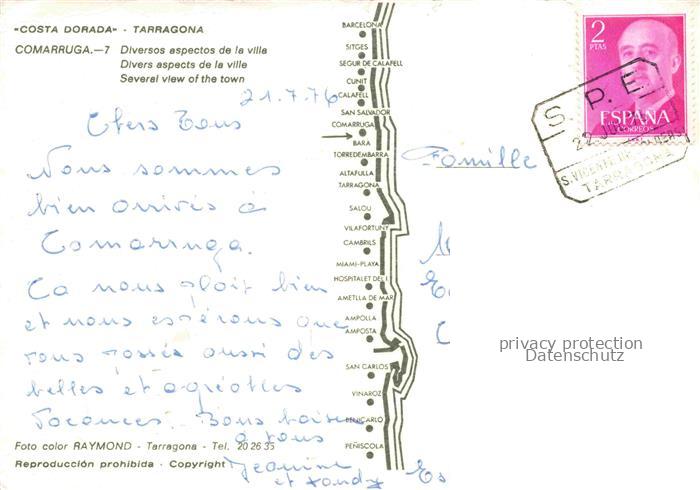 "COSTA DORADA" - TARRAGONA
COMARRUGA.—7 Diversos aspectos de la villa
Divers aspects de la ville
Several view of the town
21.7.76
Chers Tous
Nous sommes
bien arrivés à
Comarruga.
Ca nous plait bien
et nous espérons que
vous passés aussi des
belles et agréables
Vacances. Bons baisers
a tous
Jeanine
et
Foto color RAYMOND - Tarragona - Tel. 20 26 35
Reproducción prohibida - Copyright
BARCELONA
SITGES
SEGUR DE CALAFELL
CUNIT
CALAFELL
SAN SALVADOR
COMARRUGA
BARA
TORREDEMBARRA
ALTAFULLA
TARRAGONA
SALOU
VILAFORTUNY
CAMBRILS
MIAMI-PLAYA
HOSPITALET DEL I.
AMETLLA DE MAR
AMPOLLA
AMPOSTA
SAN CARLOS
VINAROZ
BENICARLO
PEÑISCOLA
Famille
2
PTAS
ESPAÑA
CORREOS
S. P. E.
TARRAGONA
privacy protection
Datenschutz